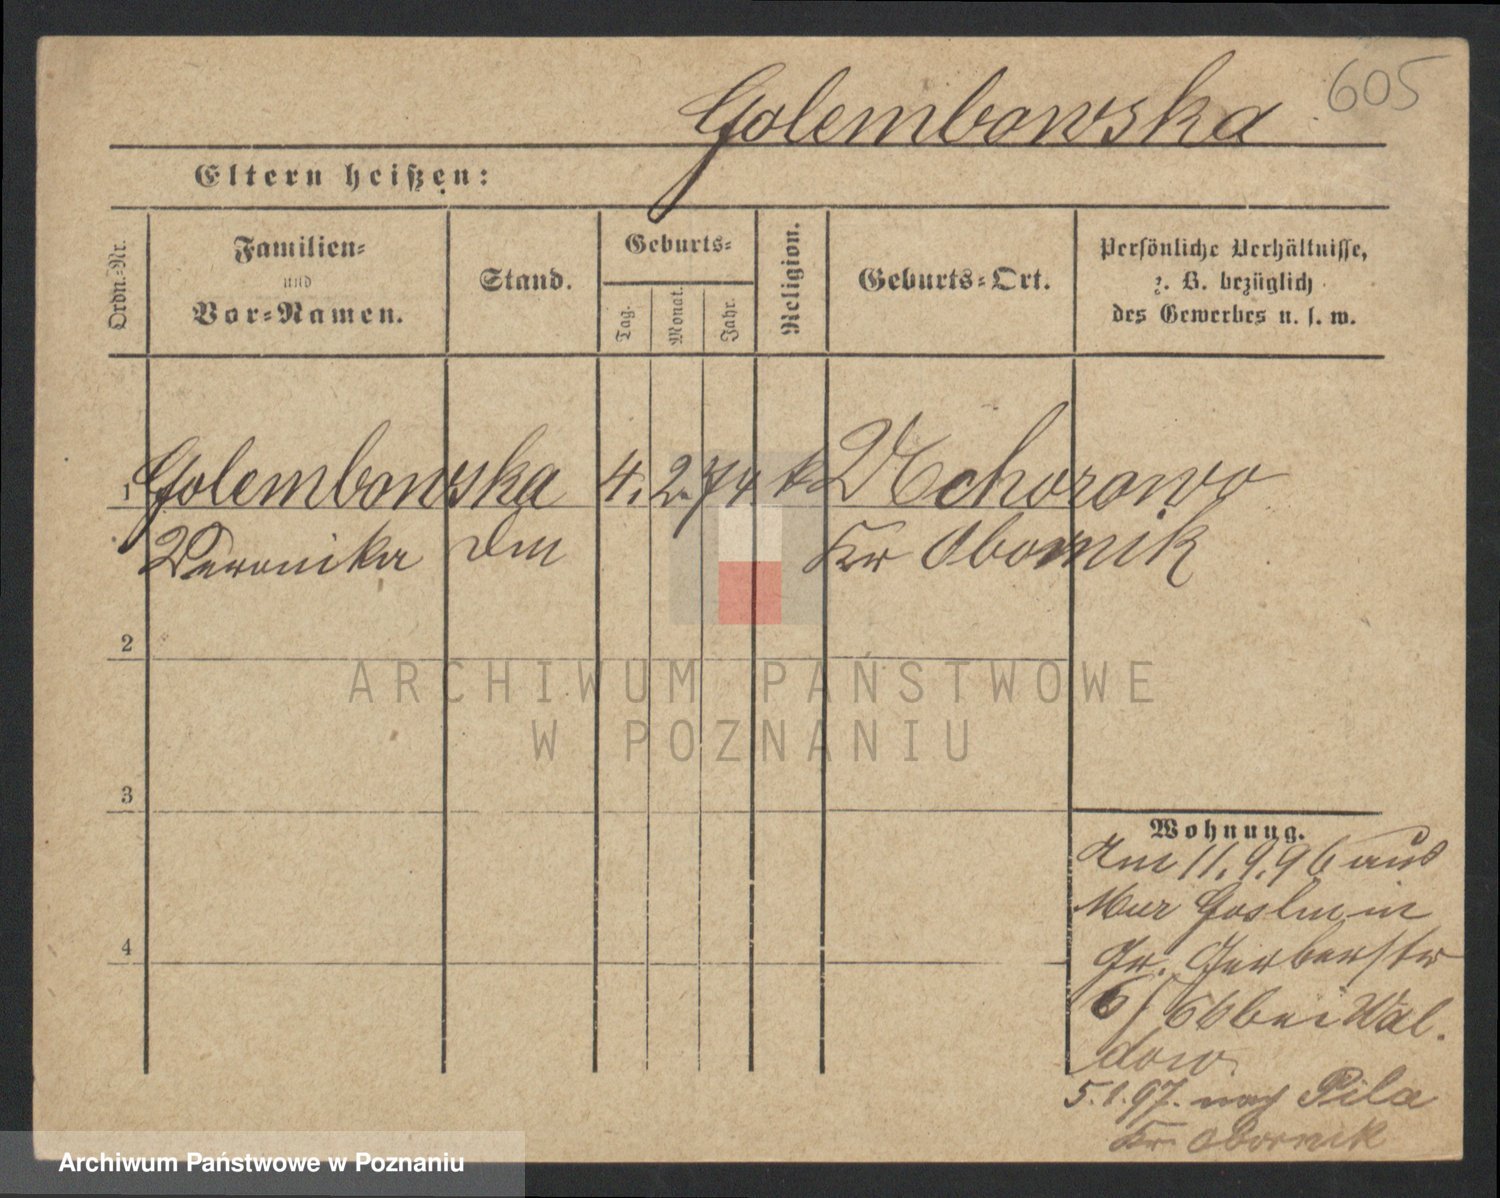 Golembowska
605
Eltern heißen:
Ordn.=Nr.
Familien=
und
Vor=Namen.
Stand.
Geburts=
Tag.
Monat.
Jahr.
Religion.
Geburts=Ort.
Persönliche Verhältnisse,
z. B. bezüglich
des Gewerbes u. s. w.
1 Golembowska 4. 2. 74. k. Uchorowo
Veronika Kr Obornik
2
ARCHIWUM PAŃSTWOWE
W POZNANIU
3
Wohnung.
Am 11.9.96 aus
Mur Goslin in
Gr. Gerberstr
6/66 bei Wal-
dow
5.1.97. nach Pila
Kr. Obornik
4
Archiwum Państwowe w Poznaniu